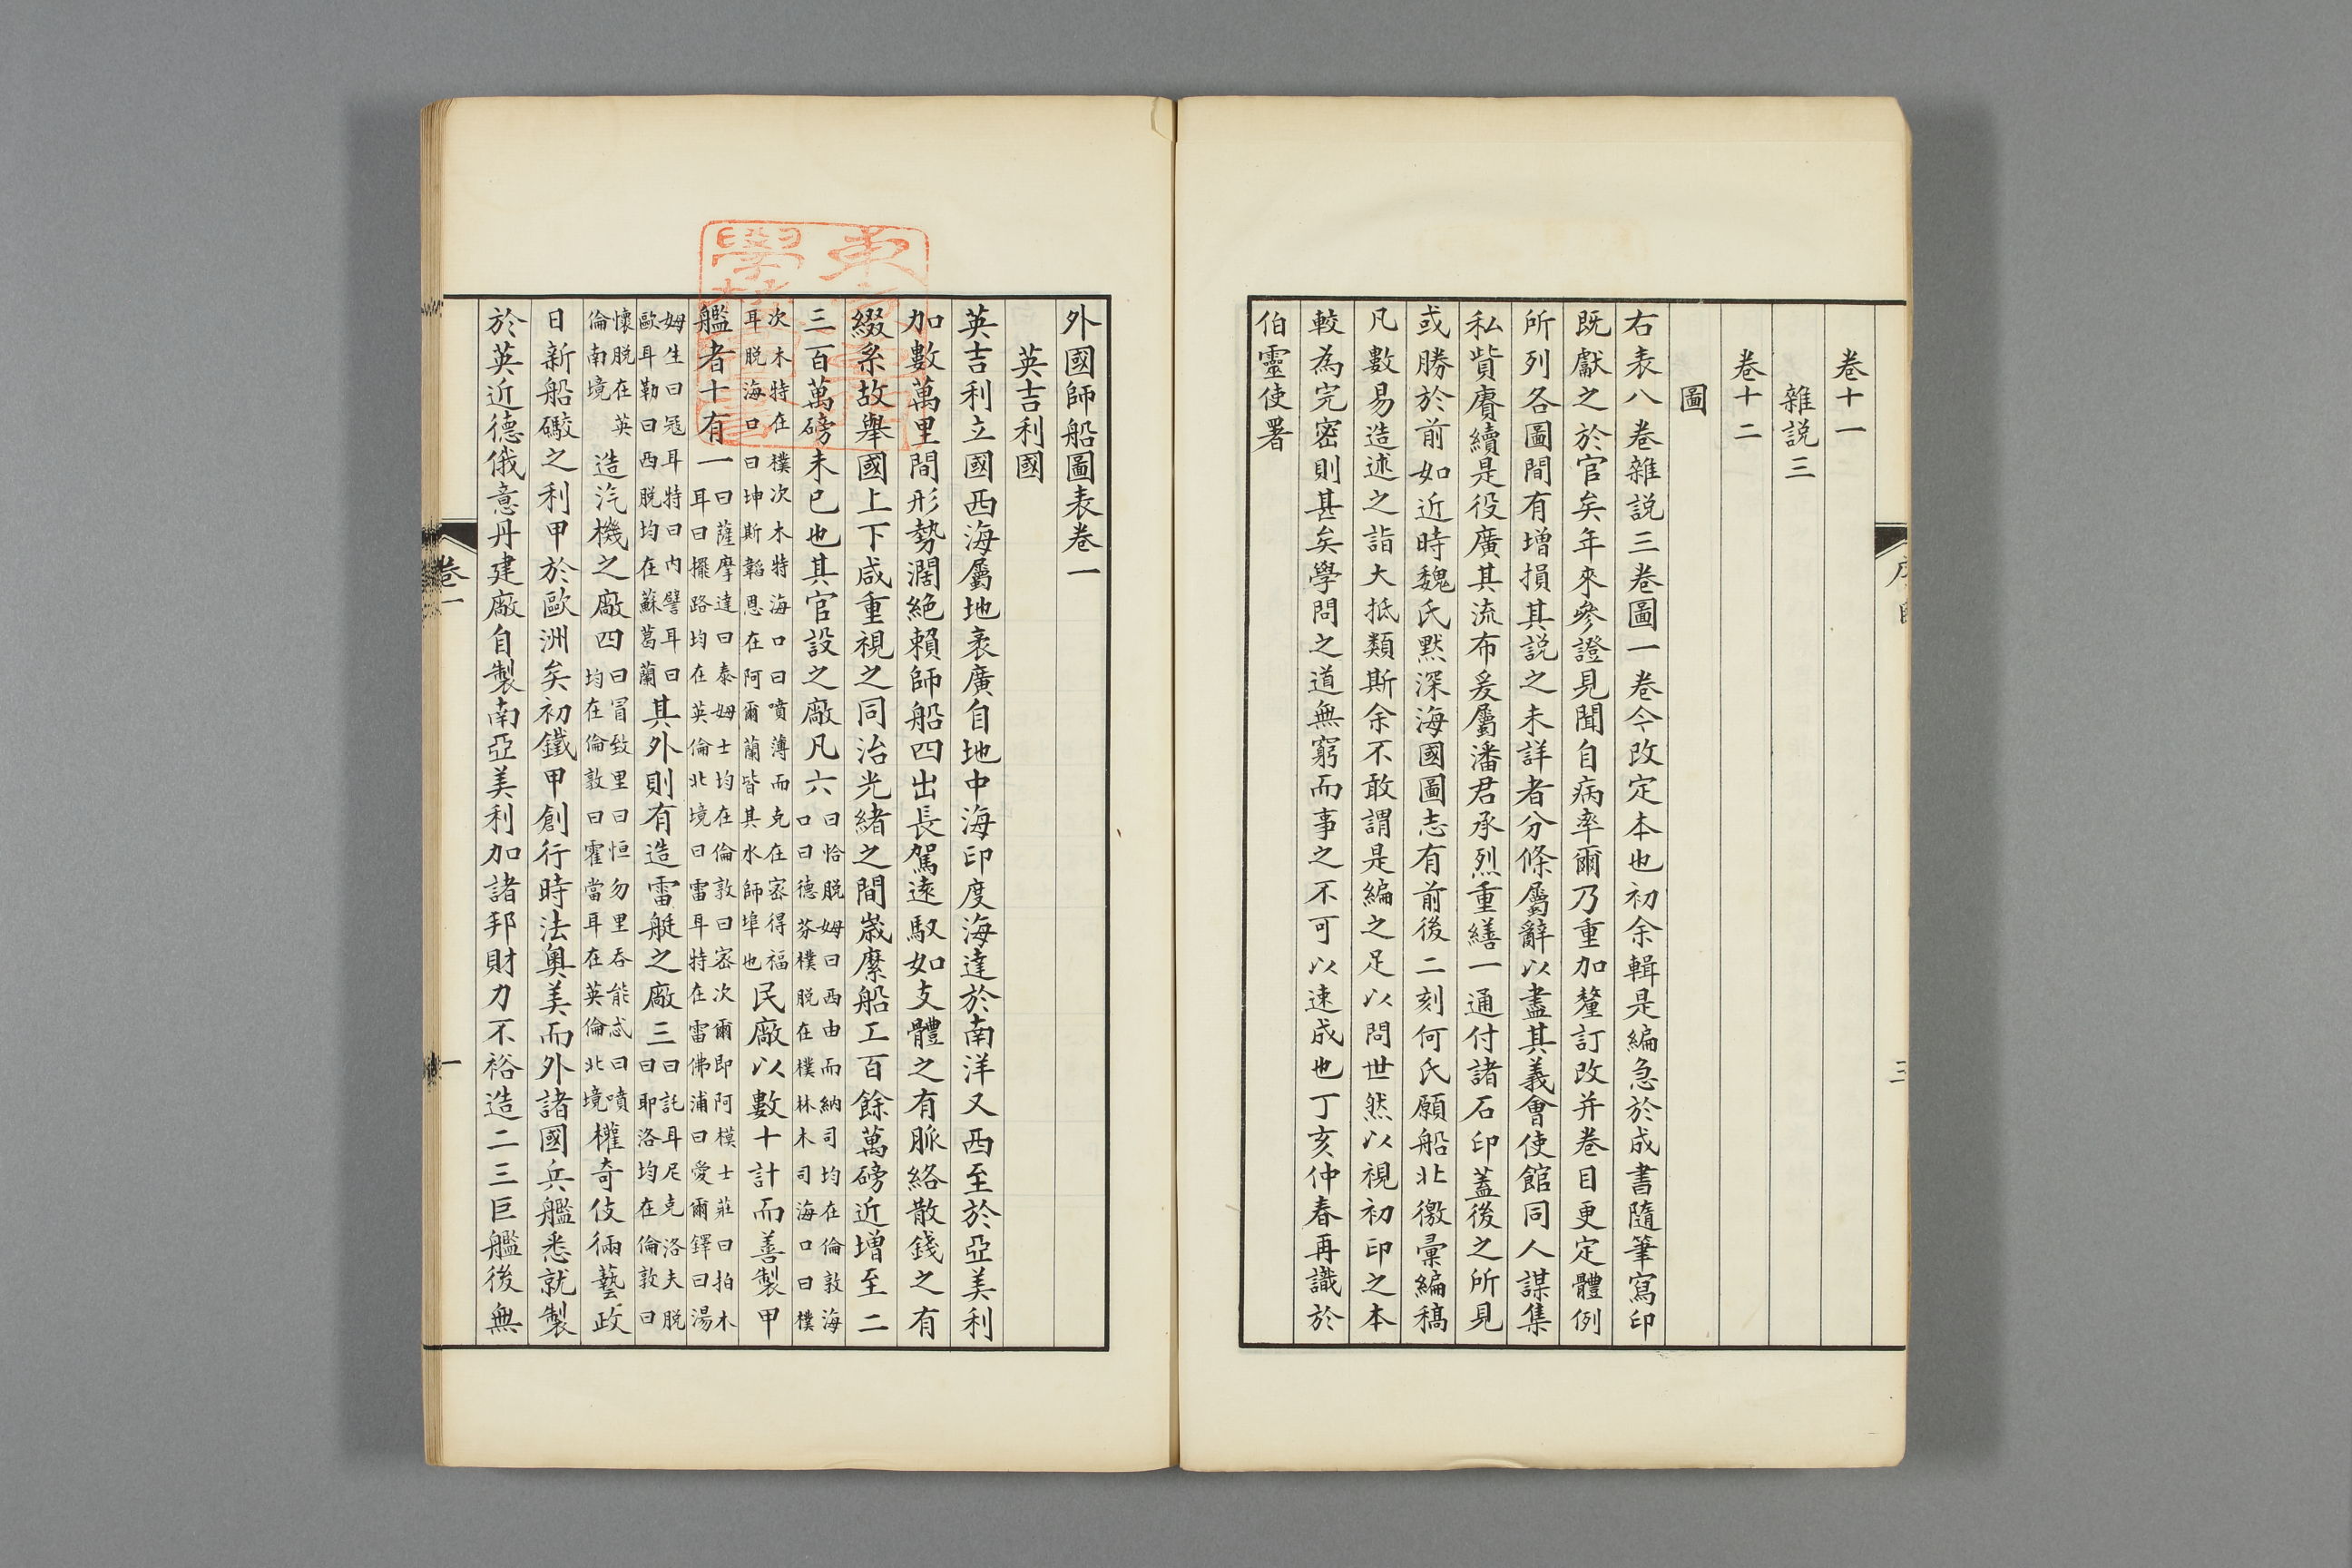 卷十一
雜説三
卷十二
圖
右表八卷雜説三卷圖一卷今改定本也初余輯是編急於成書隨筆寫印
既獻之於官矣年來參證見聞自病率爾乃重加釐訂改并卷目更定體例
所列各圖間有增損其説之未詳者分條屬辭以盡其義會使館同人謀集
私貲賡續是役廣其流布爰屬潘君承烈重繕一通付諸石印蓋後之所見
或勝於前如近時魏氏默深海國圖志有前後二刻何氏願船北徼彙編稿
凡數易造述之詣大抵類斯余不敢謂是編之足以問世然以視初印之本
較為完密則甚矣學問之道無窮而事之不可以速成也丁亥仲春再識於
伯靈使署
三
外國師船圖表卷一
英吉利國
英吉利立國西海屬地袤廣自地中海印度海達於南洋又西至於亞美利
加數萬里間形勢濶絶賴師船四出長駕遠馭如支體之有脈絡散錢之有
綴系故舉國上下咸重視之同治光緒之間嵗縻船工百餘萬磅近增至二
三百萬磅未已也其官設之廠凡六
曰恰脱姆曰西由而納司均在倫敦海
口曰德芬樸脱在樸林木司海口曰樸
次木特在樸次木特海口曰噴薄而克在密得福
耳脱海口曰坤斯韜恩在阿爾蘭皆其水師埠也
民廠以數十計而善製甲
艦者十有一
曰薩摩達曰泰姆士均在倫敦曰密次爾即阿模士莊曰拍木
耳曰擺路均在英倫北境曰雷耳特在雷佛浦曰愛爾鐸曰湯
姆生曰冦耳特曰内譬耳曰
歐耳勒曰西脱均在蘇葛蘭
其外則有造雷艇之廠三
曰託耳尼克洛夫脱
曰耶洛均在倫敦曰
懷脱在英
倫南境
造汽機之廠四
曰冒致里曰恒勿里吞能忒曰噴
均在倫敦曰霍當耳在英倫北境
權奇伎倆藝政
日新船礮之利甲於歐洲矣初鐵甲創行時法奥美而外諸國兵艦悉就製
於英近德俄意丹建廠自製南亞美利加諸邦財力不裕造二三巨艦後無
卷一
一